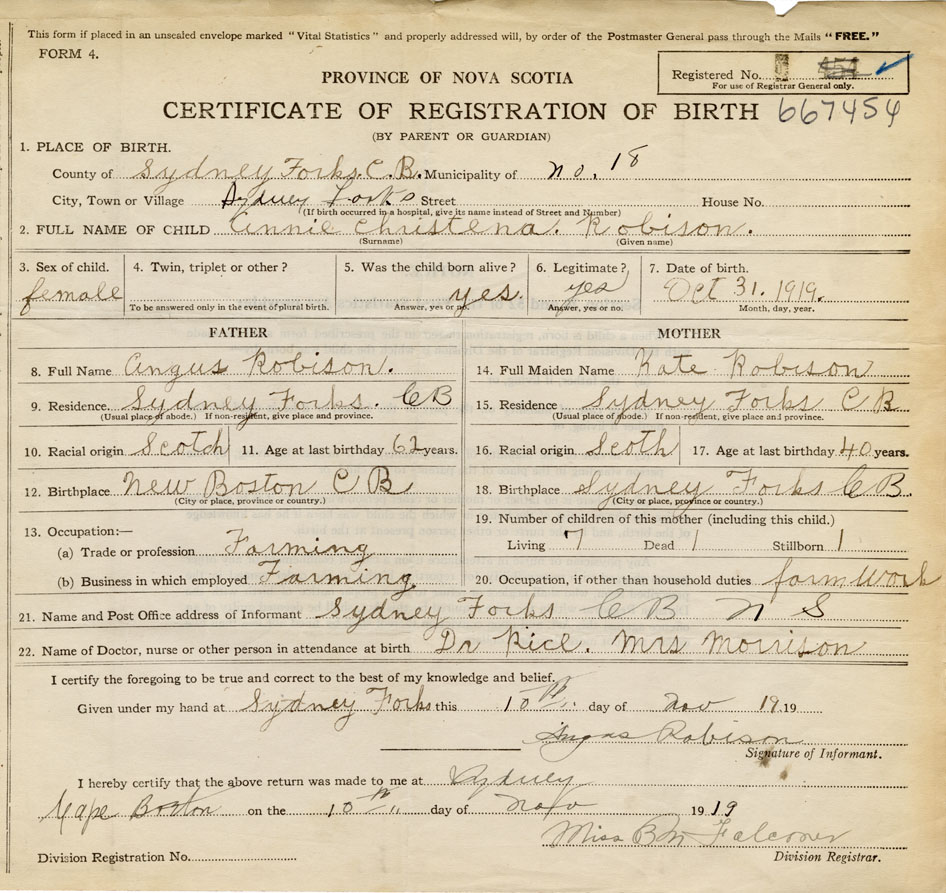 This form if placed in an unsealed envelope marked "Vital Statistics" and properly addressed will, by order of the Postmaster General pass through the Mails "FREE."
FORM 4.
Registered No.
For use of Registrar General only.
PROVINCE OF NOVA SCOTIA
CERTIFICATE OF REGISTRATION OF BIRTH 667454
(BY PARENT OR GUARDIAN)
1. PLACE OF BIRTH.
County of Sydney Forks. C. B. Municipality of no. 18
City, Town or Village Sydney Forks Street House No.
(If birth occurred in a hospital, give its name instead of Street and Number)
2. FULL NAME OF CHILD Annie Christena. Robison.
(Surname) (Given name)
3. Sex of child. 4. Twin, triplet or other? 5. Was the child born alive? 6. Legitimate? 7. Date of birth.
female yes. yes Oct 31. 1919.
To be answered only in the event of plural birth. Answer, yes or no. Answer, yes or no. Month, day, year.
FATHER MOTHER
8. Full Name Angus Robison. 14. Full Maiden Name Kate Robison
9. Residence Sydney Forks. CB 15. Residence Sydney Forks C B
(Usual place of abode.) If non-resident, give place and province. (Usual place of abode.) If non-resident, give place and province.
10. Racial origin Scotch 11. Age at last birthday 62 years. 16. Racial origin Scoth 17. Age at last birthday 40 years.
12. Birthplace New Boston C B 18. Birthplace Sydney Forks C B.
(City or place, province or country.) (City or place, province or country.)
13. Occupation:— 19. Number of children of this mother (including this child.)
(a) Trade or profession Farming Living 7 Dead 1 Stillborn 1
(b) Business in which employed Farming. 20. Occupation, if other than household duties farm Work
21. Name and Post Office address of Informant Sydney Forks C B N S
22. Name of Doctor, nurse or other person in attendance at birth Dr Rice. Mrs Morrison
I certify the foregoing to be true and correct to the best of my knowledge and belief.
Given under my hand at Sydney Forks this 10th. day of Nov 1919
Angus Robison
Signature of Informant.
I hereby certify that the above return was made to me at Sydney
Cape Boston on the 10th day of Nov 1919
Miss B M Falconer
Division Registration No. Division Registrar.